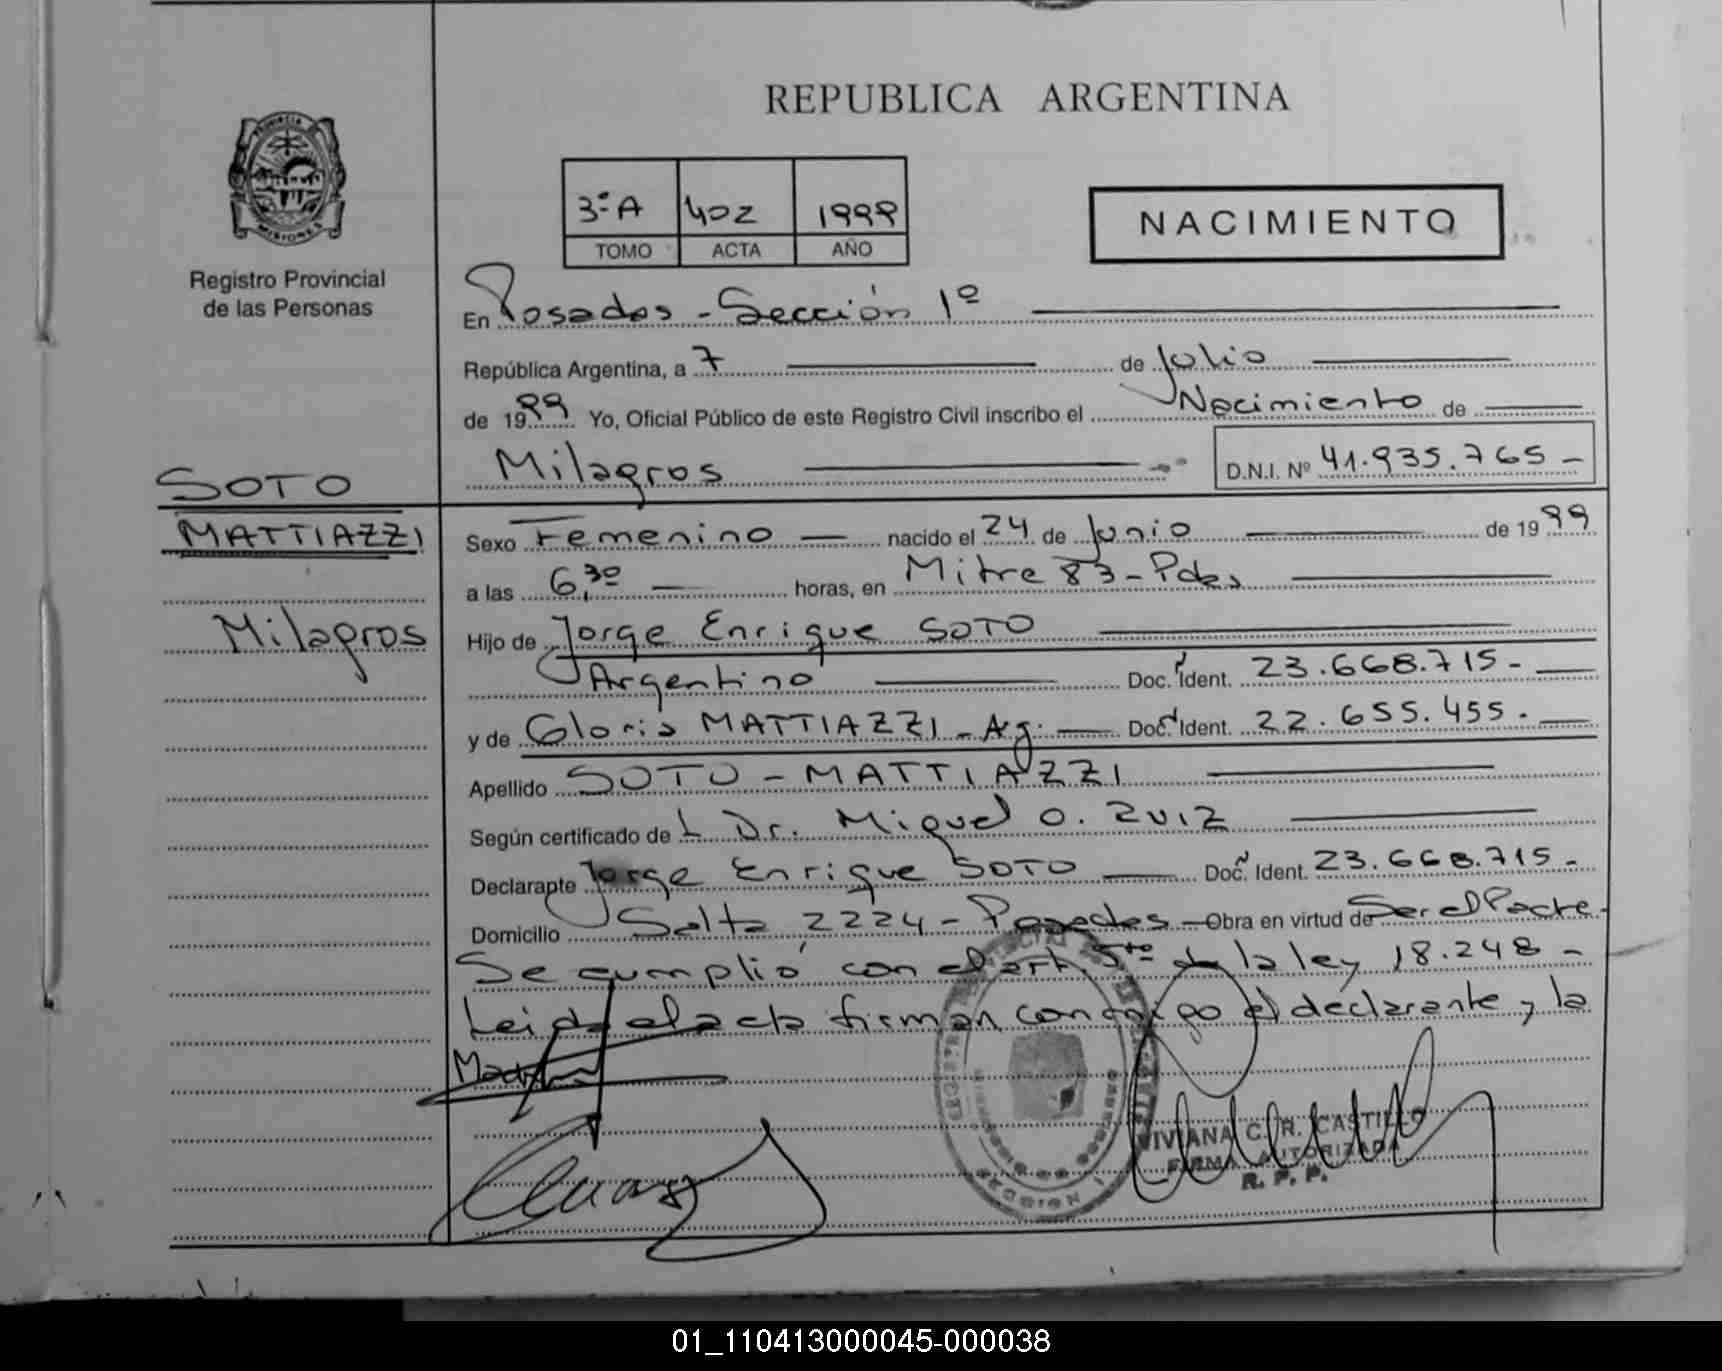 REPUBLICA ARGENTINA
PROVINCIA DE
MISIONES
Registro Provincial
de las Personas
3º A 402 1999
TOMO ACTA AÑO
NACIMIENTO
En Posadas - Sección 1º
República Argentina, a 7 de Julio
de 1999 Yo, Oficial Público de este Registro Civil inscribo el Nacimiento de
Milagros D.N.I. Nº 41.935.765 -
SOTO
MATTIAZZI
Milagros
Sexo Femenino nacido el 24 de Junio de 1999
a las 6,30 horas, en Mitre 83 - Pdas
Hijo de Jorge Enrique SOTO
Argentino Doc. Ident. 23.668.715 -
y de Gloria MATTIAZZI - Arg. Doc. Ident. 22.655.455. -
Apellido SOTO - MATTIAZZI
Según certificado del Dr. Miguel O. RUIZ
Declarante Jorge Enrique SOTO Doc. Ident. 23.668.715 -
Domicilio Salta 2224 - Posadas - Obra en virtud de Ser el Padre -
Se cumplió con el art. 5to de la ley 18.248 -
Leida el acta firman conmigo el declarante y la
Madre
VIVIANA C. R. CASTILLO
FIRMA AUTORIZADA
R. P. P.
01_110413000045-000038